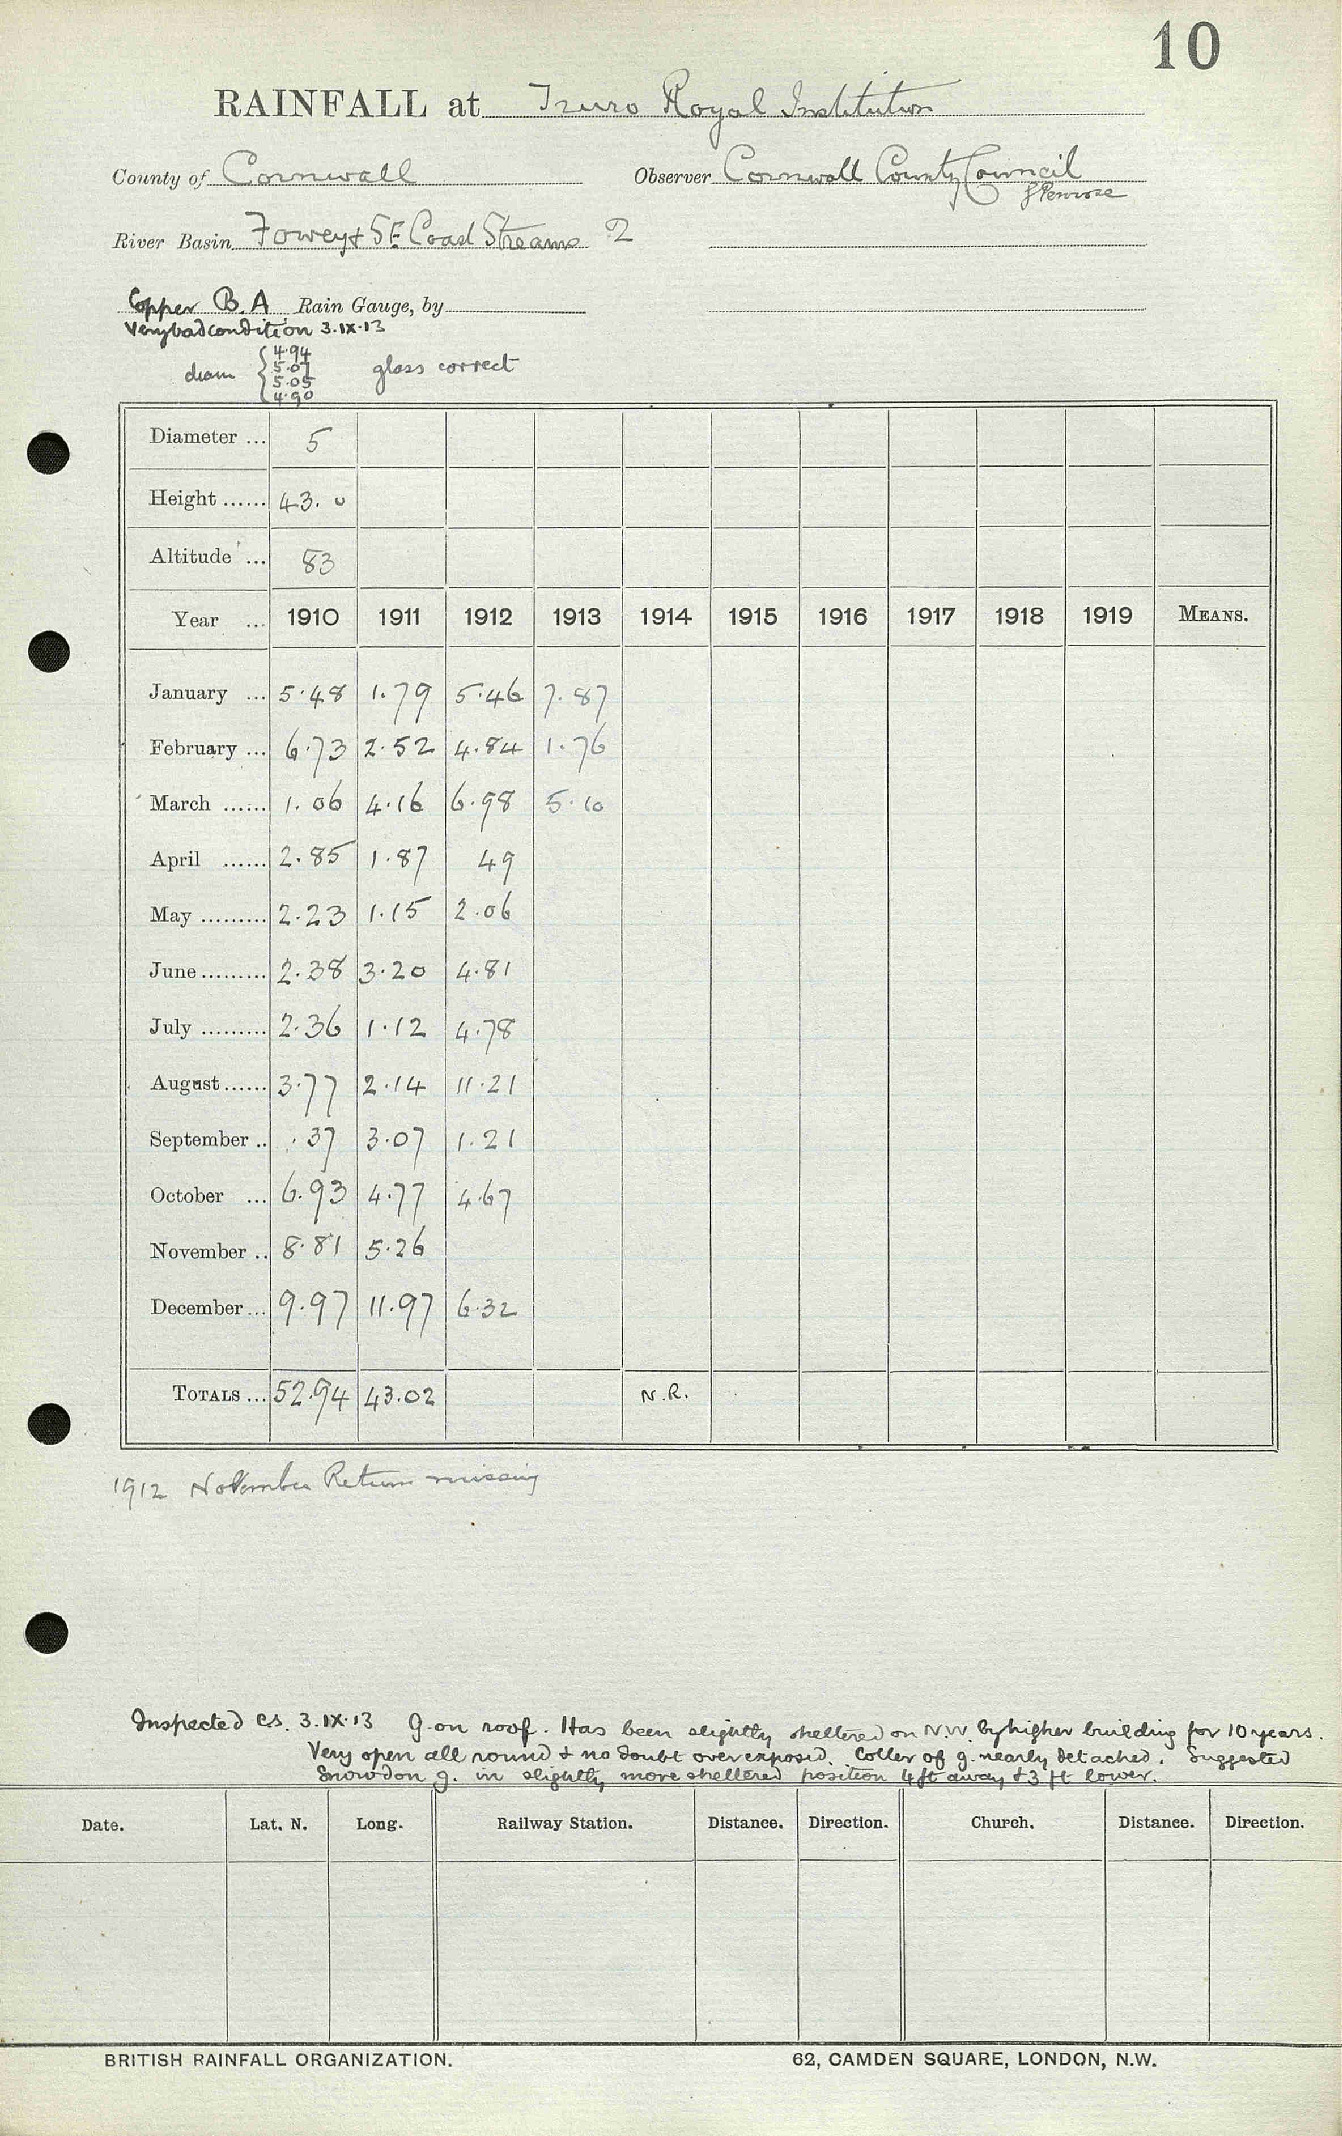 10
RAINFALL at Truro Royal Institution
County of Cornwall Observer Cornwall County Council
J Penrose
River Basin Fowey & SE Coast Streams 2
Copper B.A Rain Gauge, by
Very bad condition 3.IX.13
diam { 4.94 glass correct
5.07
5.05
4.90
Diameter ... 5
Height ...... 43. 0
Altitude ... 83
Year ... 1910 1911 1912 1913 1914 1915 1916 1917 1918 1919 MEANS.
January ... 5.48 1.79 5.46 7.87
February ... 6.73 2.52 4.84 1.76
March ...... 1.06 4.16 6.98 5.10
April ...... 2.85 1.87 49
May ......... 2.23 1.15 2.06
June ......... 2.38 3.20 4.81
July ......... 2.36 1.12 4.78
August ...... 3.77 2.14 11.21
September .. .37 3.07 1.21
October ... 6.93 4.77 4.67
November .. 8.81 5.26
December ... 9.97 11.97 6.32
TOTALS ... 52.94 43.02 N.R.
1912 November Return missing
Inspected C.S. 3.IX.13 g. on roof. Has been slightly sheltered on N.W. by higher building for 10 years.
Very open all round & no doubt over exposed. Coller of g. nearly detached. Suggested
Snowdon g. in slightly more sheltered position 4ft away & 3 ft lower.
Date. Lat. N. Long. Railway Station. Distance. Direction. Church. Distance. Direction.
BRITISH RAINFALL ORGANIZATION. 62, CAMDEN SQUARE, LONDON, N.W.